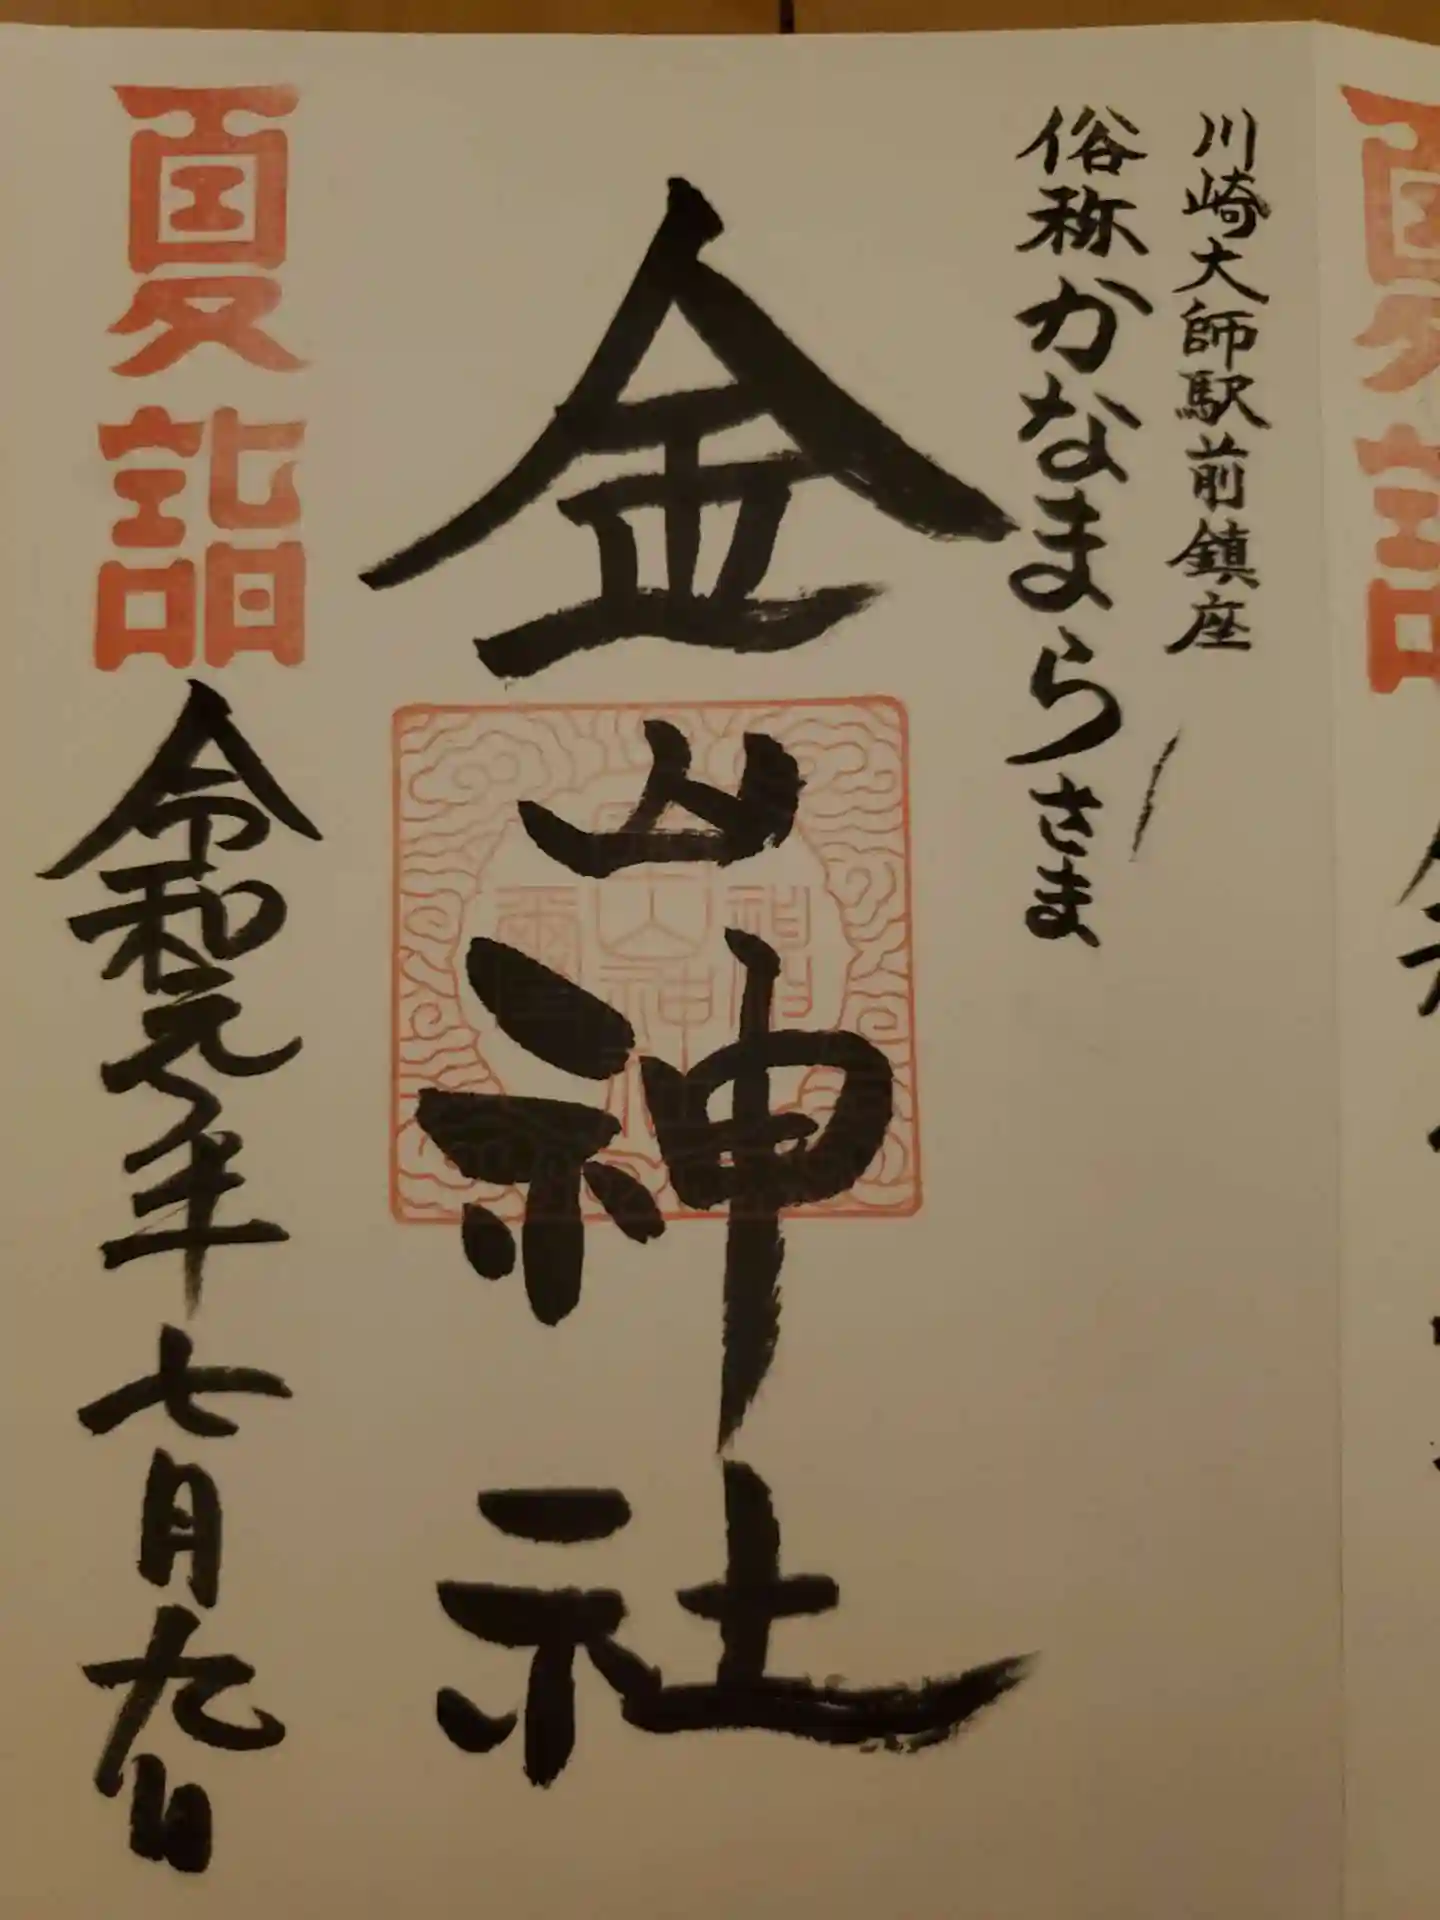 川崎大師駅前鎮座
俗称かなまらさま
金山神社
夏詣
令和元年七月九日